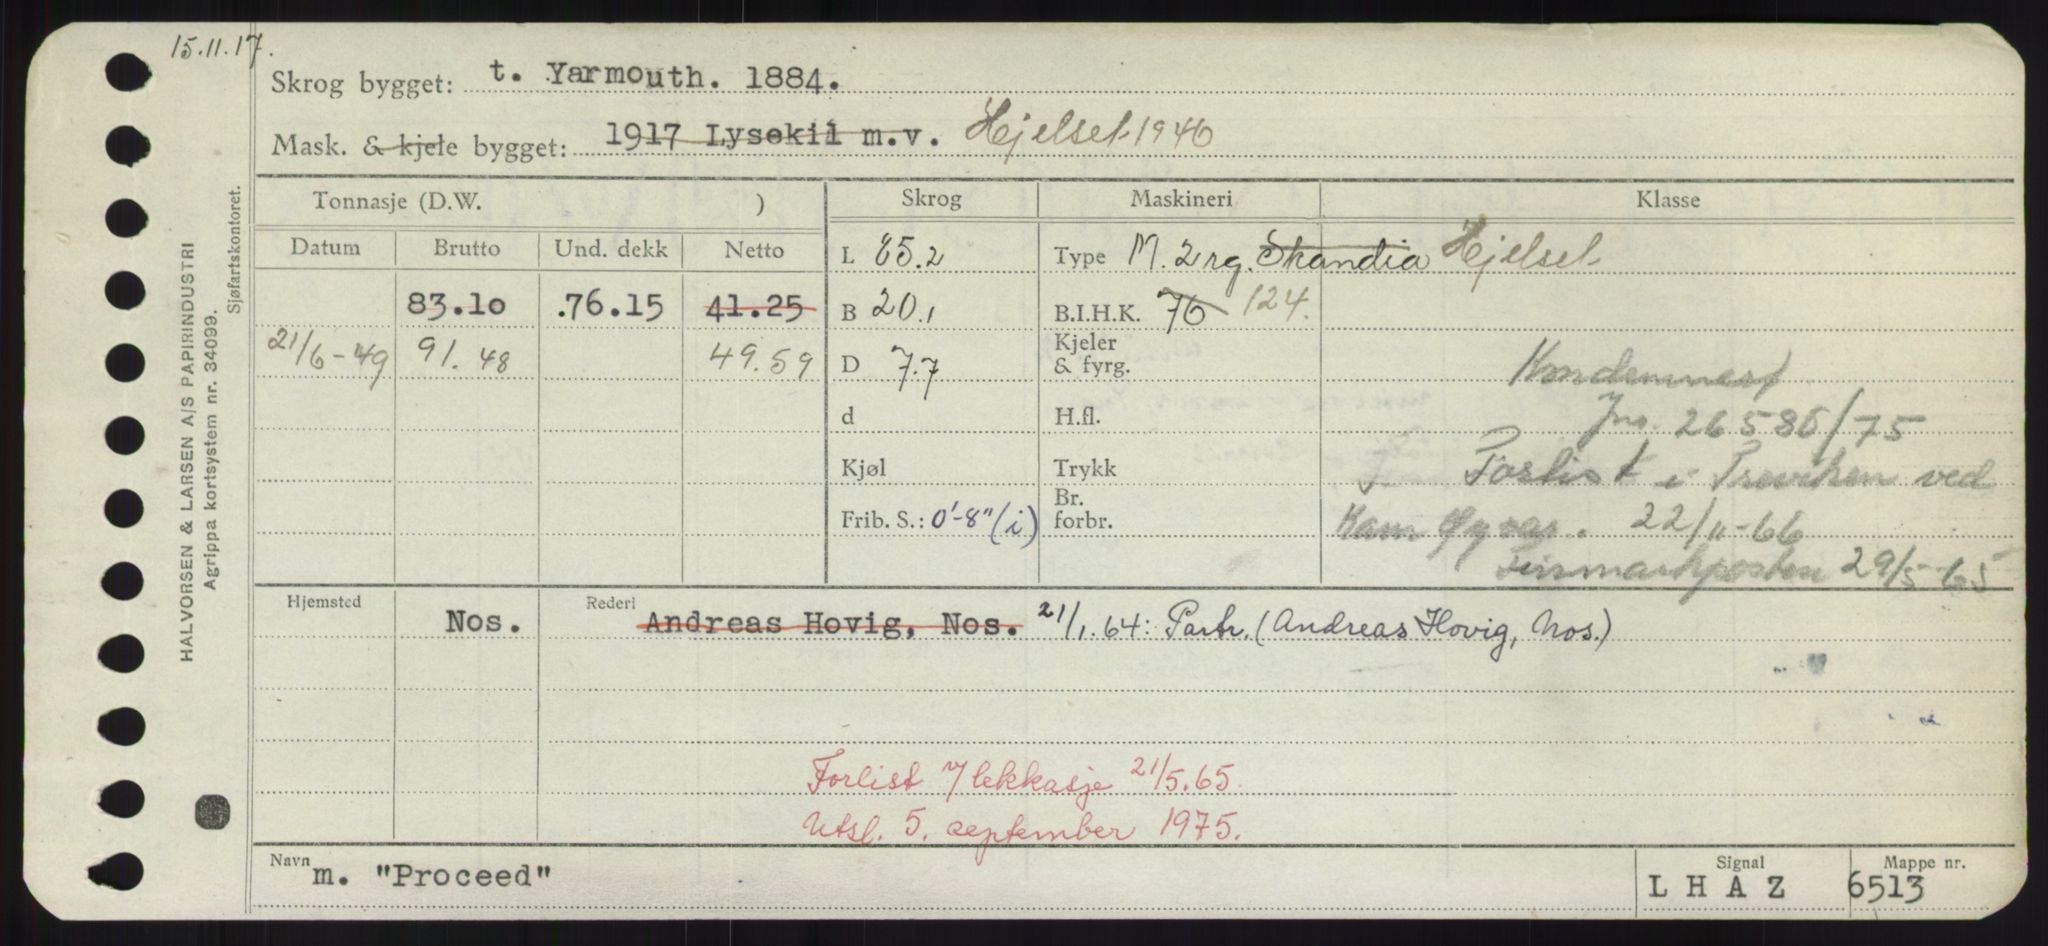 15.11.17.
Skrog bygget: t. Yarmouth. 1884.
Mask. & kjele bygget: 1917 Lysekil m.v. Hjelset 1946
Tonnasje (D.W. ) Skrog Maskineri Klasse
Datum Brutto Und. dekk Netto
L 85.2 Type M. 2 rg. Skandia Hjelset
83.10 .76.15 41.25 B 20.1 B.I.H.K. 76 124.
21/6-49 91.48 49.59 D 7.7 Kjeler & fyrg.
Kondemnert
d H.fl. Jnr. 26586/75
Kjøl Trykk Forlist i ved
Frib. S.: 0'-8" (i) Br. forbr. 22/11-66
Finmarkposten 29/5-65
Hjemsted Nos. Rederi Andreas Hovig, Nos. 21/1.64: Partr. (Andreas Hovig, Nos.)
Forlist v/ lekkasje 21/5.65.
Utsl. 5. september 1975.
Navn m. "Proceed" Signal L H A Z Mappe nr. 6513
HALVORSEN & LARSEN A/S PAPIRINDUSTRI
Agrippa kortsystem nr. 34099.
Sjøfartskontoret.